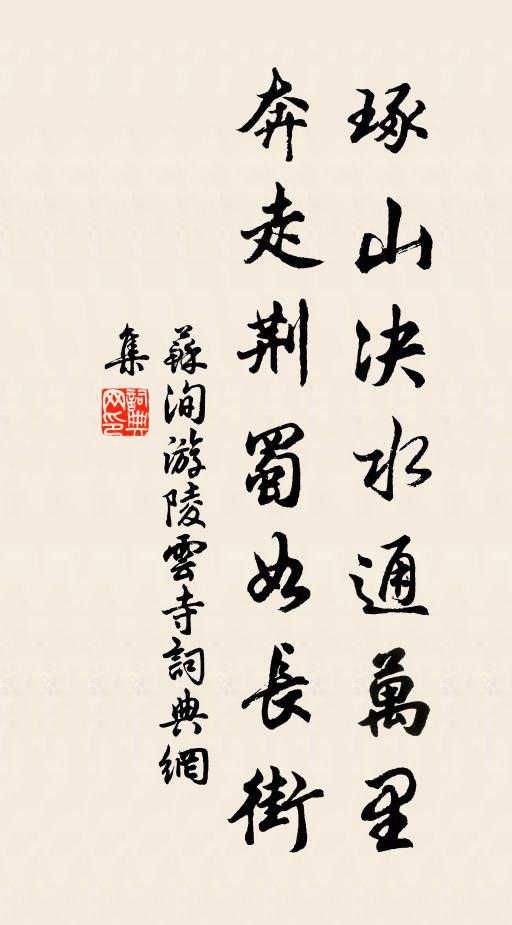 琢山決水通萬里
奔走荆蜀如長街
蘇洵游陵雲寺詞典網
集
詞典
网印